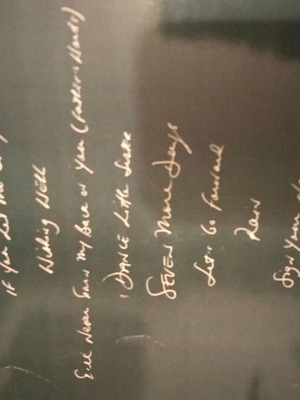 If You Let Me
Wishing Well
I'll Never Turn My Back on You (Father's Words)
Dance Little Sister
Seven More Days
Let's Go Forward
Rain
Sign Your